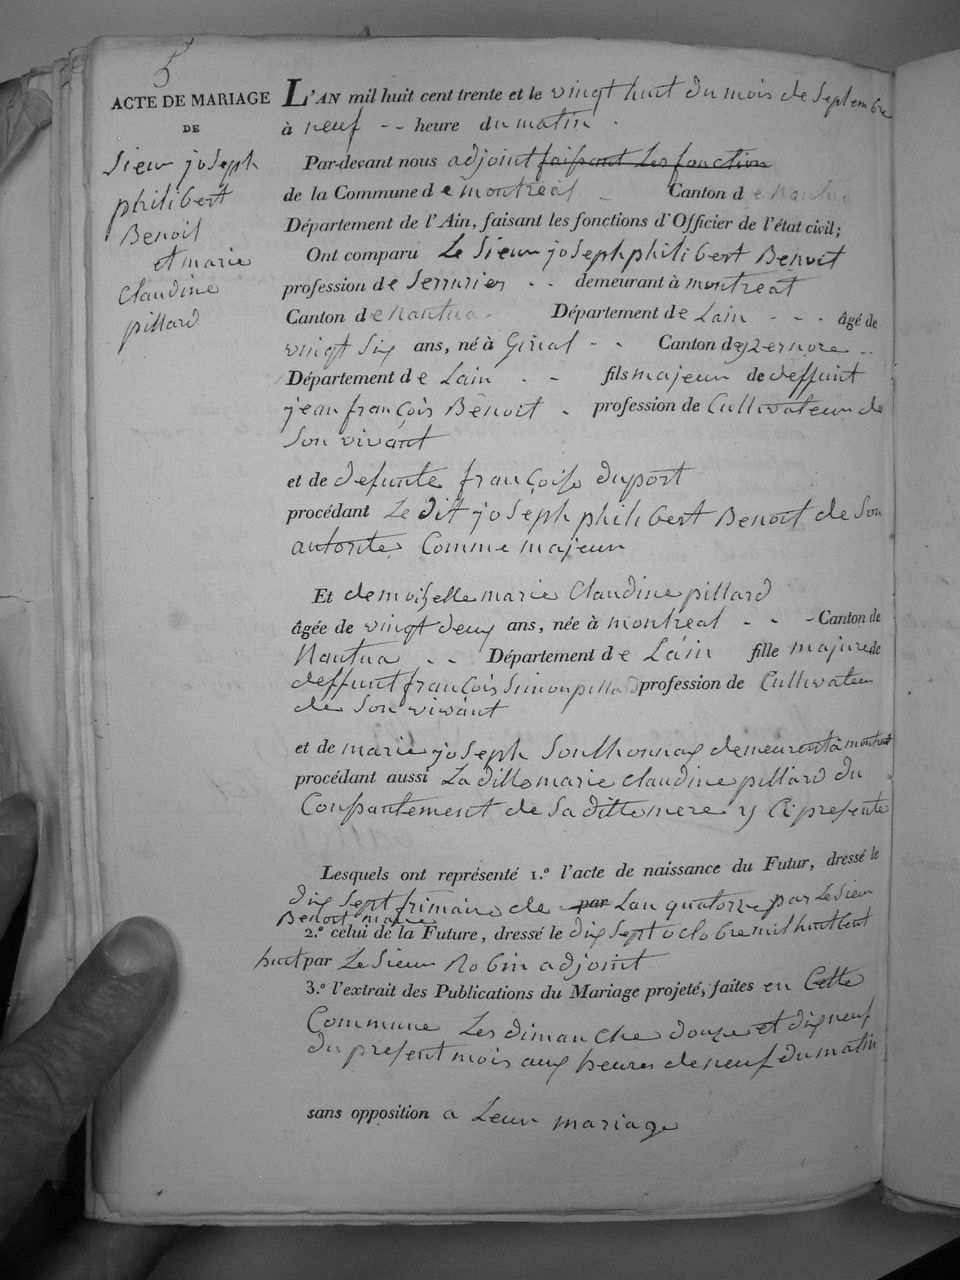 5
ACTE DE MARIAGE
DE
Sieur joseph
philibert
Benoit
et marie
Claudine
pillard
L'AN mil huit cent trente et le vingt huit du mois de Septembre
à neuf -- heure du matin .
Par-devant nous adjoint faisant les fonction
de la Commune de montreal - Canton de Nantua
Département de l'Ain, faisant les fonctions d'Officier de l'état civil;
Ont comparu Le Sieur joseph philibert Benoit
profession de Serrurier - - demeurant à montreal
Canton de Nantua - Département de Lain - - - âgé de
vingt six ans, né à Giriat - - Canton dyzernore --
Département de Lain - - fils majeur de deffunt
jean françois Benoit - profession de Cultivateur de
Son vivant
et de defunte françoise duport
procédant Le dit joseph philibert Benoit de Son
autorite Comme majeur
Et demoiselle marie Claudine pillard
âgée de vingt deux ans, née à montreal - - - Canton de
Nantua - - Département de Lain fille majure de
deffunt françois Simon pillard profession de Cultivateur
de Son vivant
et de marie joseph Southonnax demeurent a montreal
procédant aussi La ditte marie claudine pillard du
Consantement de Sa ditte mere y Ci presente
Lesquels ont représenté 1.° l'acte de naissance du Futur, dressé le
dix Sept frimaire de par Lan quatorze par Le Sieur
Benoit maire
2.° celui de la Future, dressé le dix Sept octobre mil huit Cent
huit par Le Sieur Robin adjoint
3.° l'extrait des Publications du Mariage projeté, faites en Cette
Commune Les dimanche douze et dix neuf
du present mois aux heures de neuf du matin
sans opposition a Leur mariage